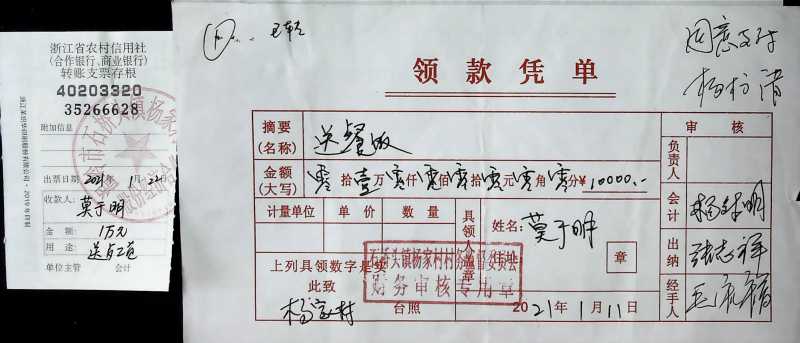 浙江省农村信用社
(合作银行、商业银行)
转账支票存根
40203320
35266628
附加信息
出票日期 2021年 1月 22日
收款人:
莫于明
金 额: 1万元
用 途:
单位主管 会计
同意支付
领款凭单
摘要
(名称)
送餐饭
金额
(大写)
零拾壹万零仟零佰零拾零元零角零分¥10000.-
计量单位 单 价 数 量
具领人盖章
姓名: 莫于明
住址
章
上列具领数字是实
此致
杨家村 台照
2021年1月11日
石桥头镇杨家村村务监督委员会
财务审核专用章
审 核
负责人
会计
出纳
张志祥
经手人